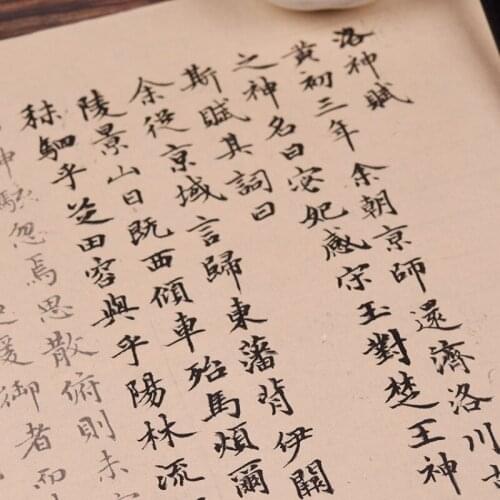 洛神賦
黄初三年余朝京師還濟洛川
之神名曰宓妃感宋玉對楚王神
斯賦其詞曰
余從京域言歸東藩背伊闕
陵景山日既西傾車殆馬煩爾
秣駟乎芝田容與乎陽林流
神駭忽焉思散俯則未
援御者而